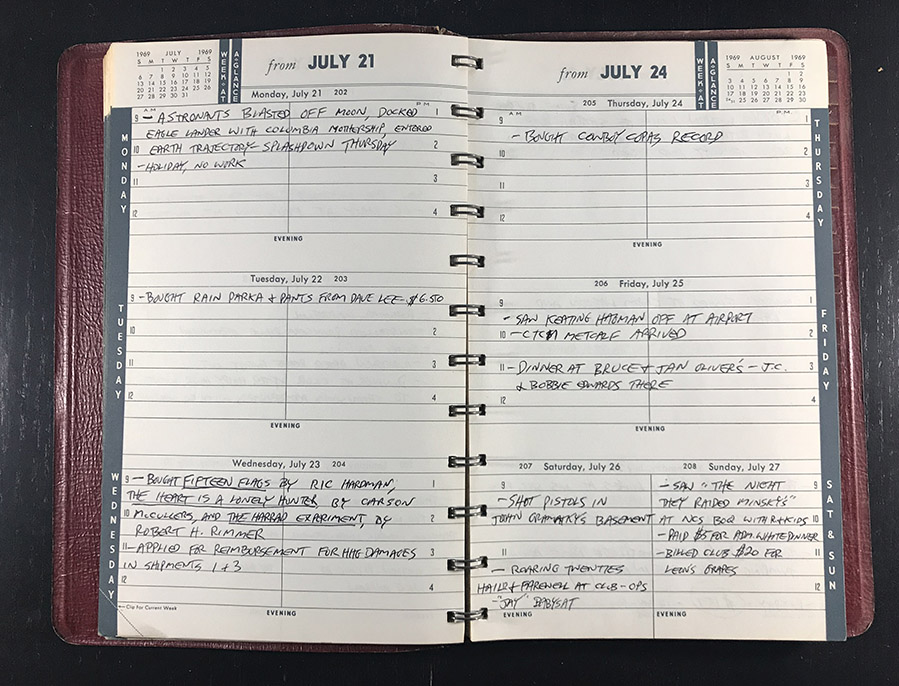 1969 JULY 1969
S M T W T F S
1 2 3 4 5
6 7 8 9 10 11 12
13 14 15 16 17 18 19
20 21 22 23 24 25 26
27 28 29 30 31
WEEK·AT
A·GLANCE
from JULY 21
Monday, July 21 202
AM PM
9 – ASTRONAUTS BLASTED OFF MOON, DOCKED 1
EAGLE LANDER WITH COLUMBIA MOTHERSHIP, ENTERED
10 EARTH TRAJECTORY– SPLASHDOWN THURSDAY 2
– HOLIDAY, NO WORK
11 3
12 4
EVENING
MONDAY
Tuesday, July 22 203
9 – BOUGHT RAIN PARKA & PANTS FROM DAVE LEE– $6.50
10 2
11 3
12 4
EVENING
TUESDAY
Wednesday, July 23 204
9 – BOUGHT FIFTEEN FLAGS BY RIC HARDMAN, 1
THE HEART IS A LONELY HUNTER, BY CARSON
10 McCULLERS, AND THE HARRAD EXPERIMENT, BY 2
ROBERT H. RIMMER
11 – APPLIED FOR REIMBURSEMENT FOR HHG DAMAGES 3
IN SHIPMENTS 1 + 3
12 4
← Clip For Current Week
EVENING
WEDNESDAY
from JULY 24
WEEK·AT
A·GLANCE
1969 AUGUST 1969
S M T W T F S
1 2
3 4 5 6 7 8 9
10 11 12 13 14 15 16
17 18 19 20 21 22 23
25 26 27 28 29 30
205 Thursday, July 24
AM PM
9 1
– BOUGHT COWBOY COPAS RECORD
10 2
11 3
12 4
EVENING
THURSDAY
206 Friday, July 25
9 1
– SAW KEATING HAOMAN OFF AT AIRPORT
10 – METCALF ARRIVED 2
11 – DINNER AT BRUCE & JAN OLIVER'S – J.C. 3
& BOBBIE EDWARDS THERE
12 4
EVENING
FRIDAY
207 Saturday, July 26
9
– SHOT PISTOLS IN
BASEMENT
11
– ROARING TWENTIES
HAIL & FAREWELL AT CLUB – OPS
– "JAY" BABYSAT
EVENING
208 Sunday, July 27
– SAW "THE NIGHT 9
THEY RAIDED MINSKY'S"
AT NCS BOQ WITH R & KIDS 10
– PAID $5 FOR ADM. WHITE DINNER
– BILLED CLUB $20 FOR 11
LEON'S GRAPES
12
EVENING
SAT & SUN